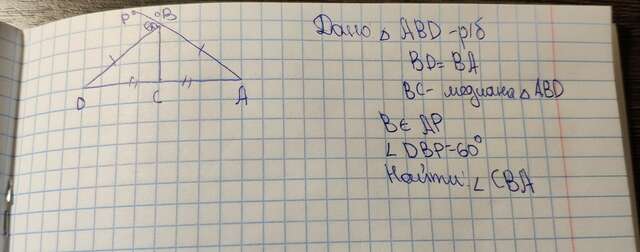 P B
60°
D C A
Дано △ ABD - р/б
BD = BA
BC - медиана △ ABD
B ∈ AP
∠ DBP = 60°
Найти: ∠ CBA